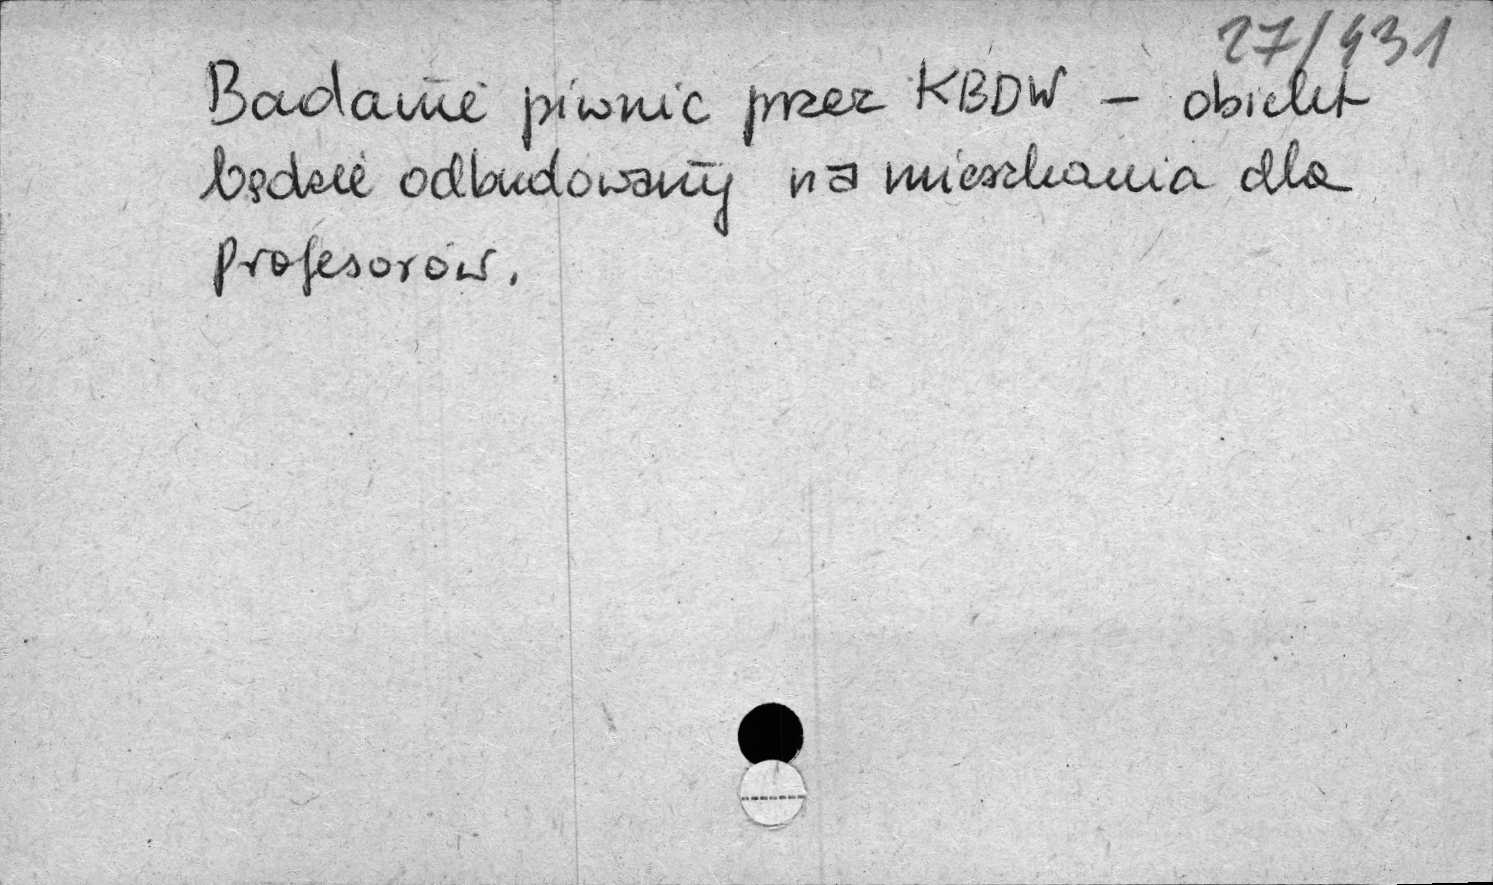 27/431
Badanie piwnic przez KBDW – obiekt
będzie odbudowany na mieszkania dla
profesorów.